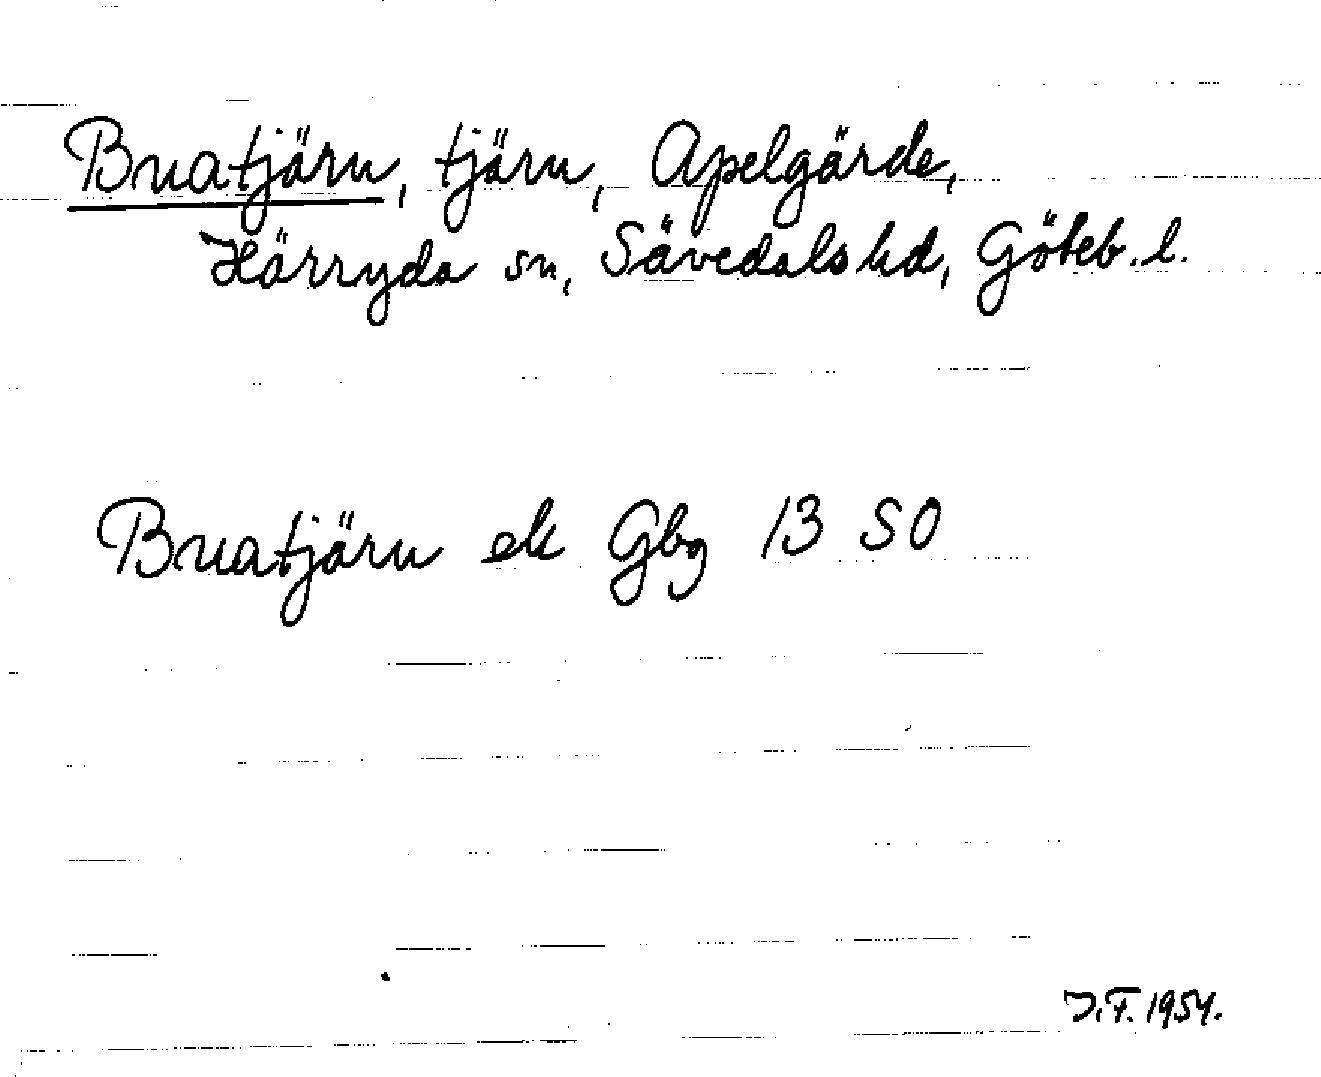 Buatjärn, tjärn, Apelgärde,
Härryda sn, Sävedals hd, Göteb. l.
Buatjärn ek Gbg 13 SO
J.F. 1954.